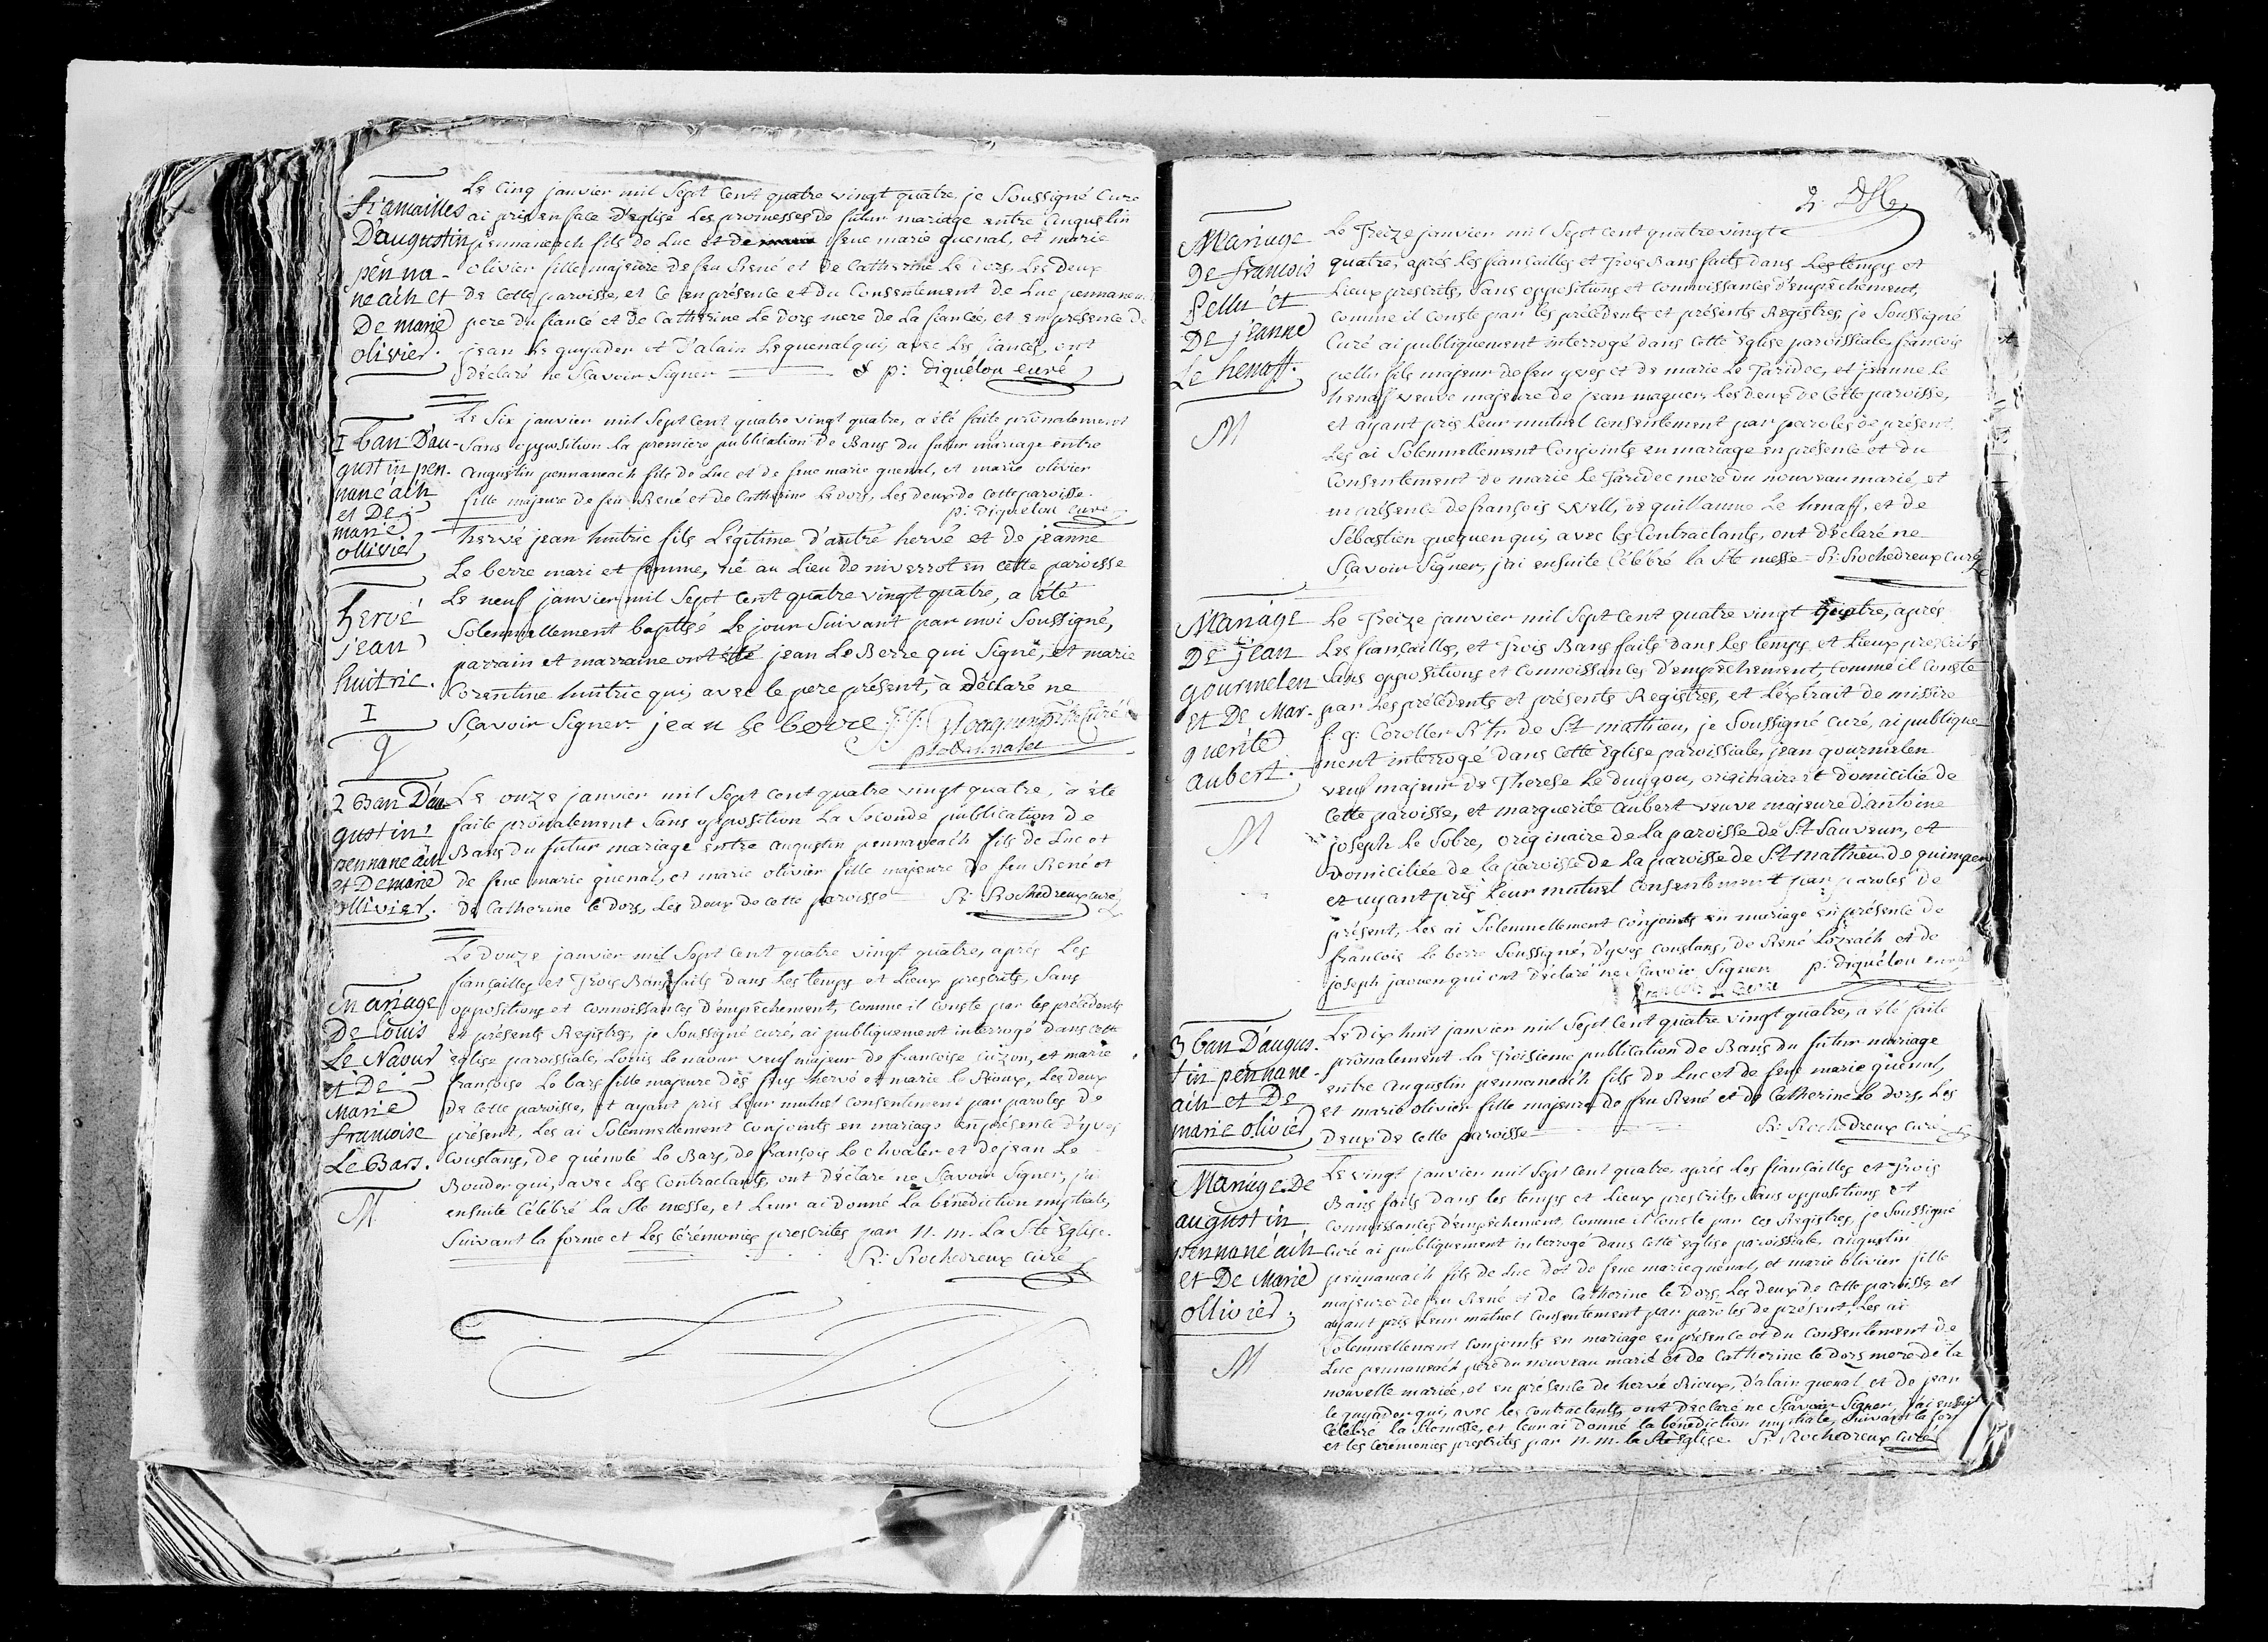 fiançailles
D'augustin
penna-
neach et
De marie
olivier.
Le Cinq janvier mil Sept Cent quatre vingt quatre, je Soussigné Curé
ai pris en face d'eglise Les promesses de futur mariage entre augustin
pennaneach fils de Luc et de feue marie quenal, et marie
olivier fille majeure de feu René et de Catherine Le Dors, Les deux
de Cette paroisse, et Ce en présence et du Consentement de Luc pennanea
pere du fiancé et de Catherine Le Dors mere de La fiancée, et en présence de
jean Le quyader et D'alain Lequenal qui, avec Les fiancés, ont
déclaré ne Sçavoir Signer p: diquélou curé
1 ban D'au-
gustin pen-
nanéach
et De
marie
ollivier
Le Six janvier mil Sept Cent quatre vingt quatre, a été faite prônalement
Sans opposition la premiere publication de Bans du futur mariage entre
augustin pennaneach fils de Luc et de feue marie quenal, et marie olivier
fille majeure de feu René et de Catherine Le dors, Les deux de Cette paroisse.
p: diquélou curé
hervé
jean
huitric.
1
hervé jean huitric fils Légitime d'autre hervé et de jeanne
Le berre mari et femme, né au Lieu de niverrot en cette paroisse
Le neuf janvier mil Sept Cent quatre vingt quatre, a été
Solennellement baptisé Le jour Suivant par moi Soussigné,
parrain et marraine ont été jean Le Berre qui Signe, et marie
Corentine huitric qui, avec le pere présent, a déclaré ne
Sçavoir Signer jean le berre
2 Ban D'au-
gustin
pennaneach
et De marie
ollivier.
Le onze janvier mil Sept Cent quatre vingt quatre, a été
faite prônalement Sans opposition La Seconde publication de
Bans du futur mariage entre augustin pennaneach fils de Luc et
de feue marie quenal, et marie olivier fille majeure de feu René et
de Catherine le dors, Les deux de cette paroisse R: Rochedreux curé
Mariage
De Louis
Le Naour
et De
Marie
francoise
Le Bars.
M
Le Douze janvier mil Sept Cent quatre vingt quatre, aprés Les
fiançailles et Trois Bans faits dans Les temps et Lieux prescrits, Sans
oppositions et connoissances d'empêchement, comme il conste par les précédents
et présents Registres, je Soussigné curé, ai publiquement interrogé dans cette
Eglise paroissiale, Louis Lenaour veuf majeur de francoise cuzon, et marie
françoise Le bars fille majeure des feus hervé et marie le Rioux, Les deux
de Cette paroisse, et ayant pris Leur mutuel consentement par paroles de
présent, Les ai Solennellement conjoints en mariage en présence d'yves
Constans, de quénolé Le Bars, de françois Le chvaler et de jean Le
Bouder qui, avec Les Contractants, ont déclaré ne Sçavoir Signer, j'ai
ensuite célébré La Ste messe, et Leur ai donné La bénediction nuptiale,
Suivant la forme et Les Cérémonies prescrites par N. m. La Ste Eglise.
R: Rochedreux Curé
2.
Mariage
De francois
Pellu et
De jeanne
Le henaff.
M
Le Treize janvier mil Sept Cent quatre vingt
quatre, aprés Les fiançailles et Trois Bans faits dans Les temps et
Lieux prescrits, Sans oppositions et connoissances d'empêchement,
Comme il Conste par les précédents et présents Registres, je Soussigné
Curé ai publiquement interrogé dans Cette Eglise paroissiale, francois
pellu fils majeur de feu yves et de marie Le Taridec, et jeanne le
henaff veuve majeure de jean maguer, Les deux de Cette paroisse,
et ayant pris Leur mutuel consentement par paroles de présent,
Les ai Solennellement Conjoints en mariage en présence et du
Consentement de marie Le Taridec mere du nouveau marié, et
en présence de françois Well, de guillaume Le henaff, et de
Sébastien gueguen qui, avec les Contractants, ont déclaré ne
Sçavoir Signer, j'ai ensuite Célébré la Ste messe R: Rochedreux Curé
Mariage
De jean
gourmelen
et De Mar-
guerite
aubert.
M
Le Treize janvier mil Sept Cent quatre vingt quatre, aprés
Les fiançailles, et Trois Bans faits dans Les temps et Lieux prescrits
Sans oppositions et connoissances d'empêchement, comme il conste
par Les précédents et présents Registres, et L'extrait de missire
f. g. Coroller Rtr. de St mathieu, je Soussigné curé, ai publique
ment interrogé dans Cette Eglise paroissiale, jean gourmelen
veuf majeur de Therese Le duygou, originaire et domicilié de
Cette paroisse, et marguerite aubert veuve majeure d'antoine
joseph Le Sobre, originaire de la paroisse de St Sauveur, et
Domiciliée de la paroisse de La paroisse de St mathieu de quimper,
et ayant pris Leur mutuel Consentement par paroles de
présent, Les ai Solennellement conjoints en mariage en présence de
francois le berre Soussigné, d'yves constans, de René Lozeach et de
joseph jaouen qui ont déclaré ne Sçavoir Signer p: diquélou curé
3 ban D'augus-
tin pennane-
ach et De
marie olivier
Le Dix huit janvier mil Sept Cent quatre vingt quatre, a été faite
prônalement la Troisieme publication de Bans du futur mariage
entre augustin pennaneach fils de Luc et de feue marie quenal,
et marie olivier fille majeure de feu René et de Catherine le dors, Les
deux de cette paroisse R: Rochedreux curé
Mariage De
augustin
pennanéach
et De Marie
ollivier.
M
Le vingt janvier mil Sept Cent quatre, aprés Les fiançailles et Trois
Bans faits dans les temps et Lieux prescrits, Sans oppositions et
connoissances d'empêchement, comme il Conste par ces Registres, je Soussigné
Curé ai publiquement interrogé dans Cette Eglise paroissiale, augustin
pennaneach fils de Luc et de feue marie quenal, et marie olivier fille
majeure de feu René et de Catherine le Dors, Les deux de Cette paroisse, et
ayant pris Leur mutuel Consentement par paroles de présent, Les ai
Solennellement conjoints en mariage en présence et du Consentement de
Luc pennaneach pere du nouveau marié et de Catherine le dors mere de la
nouvelle mariée, et en présence de hervé Rioux, d'alain quenal et de jean
le quyader qui, avec les Contractants, ont déclaré ne Sçavoir Signer, j'ai ensuite
Célébré la Ste messe, et leur ai donné la bénédiction nuptiale, Suivant la for
et les Cérémonies prescrites par N. m. la Ste Eglise. R: Rochedreux Curé